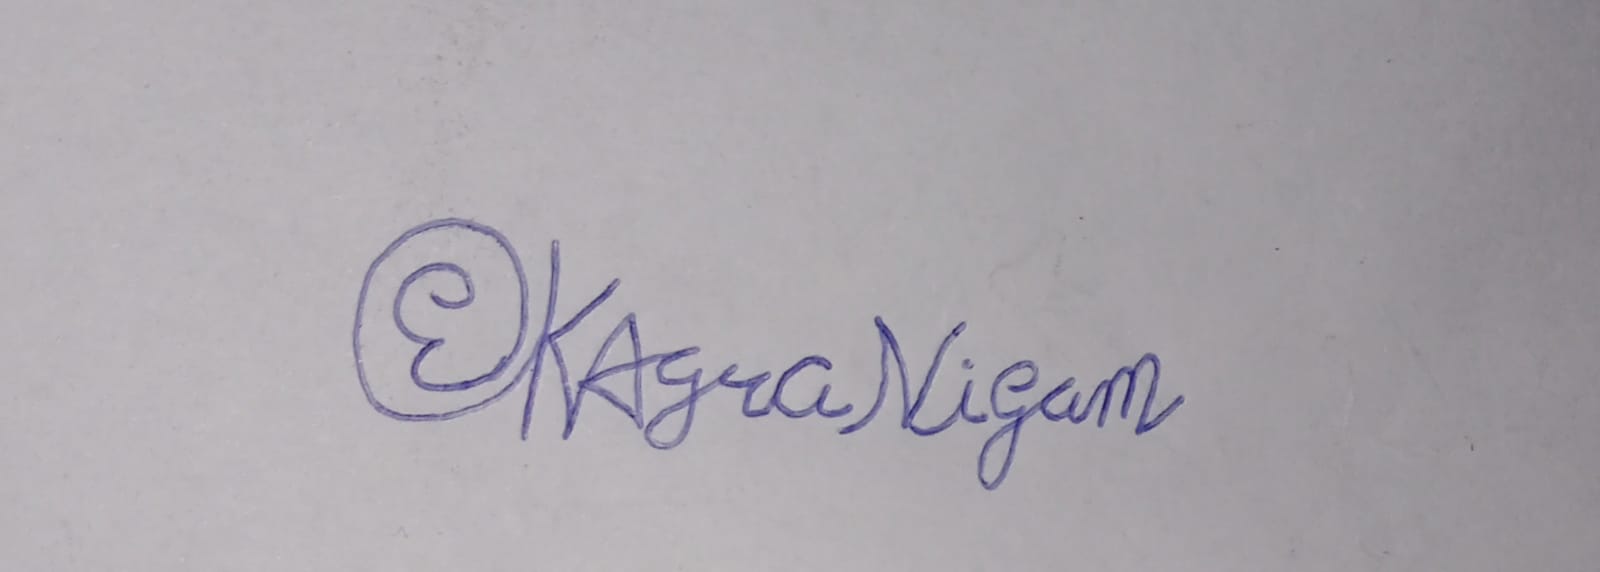 EKAgra Nigam